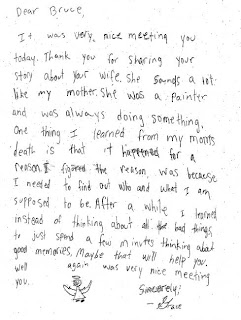 Dear Bruce,
It was very nice meeting you
today. Thank you for sharing your
story about your wife. She sounds a lot
like my mother. She was a painter
and was always doing something.
One thing I learned from my moms
death is that it happened for a
reason. I figured the reason was because
I needed to find out who and what I am
supposed to be. After a while I learned
instead of thinking about all the bad things
to just spend a few minutes thinking about
good memories. Maybe that will help you.
Well again was very nice meeting
you.
Sincerely,